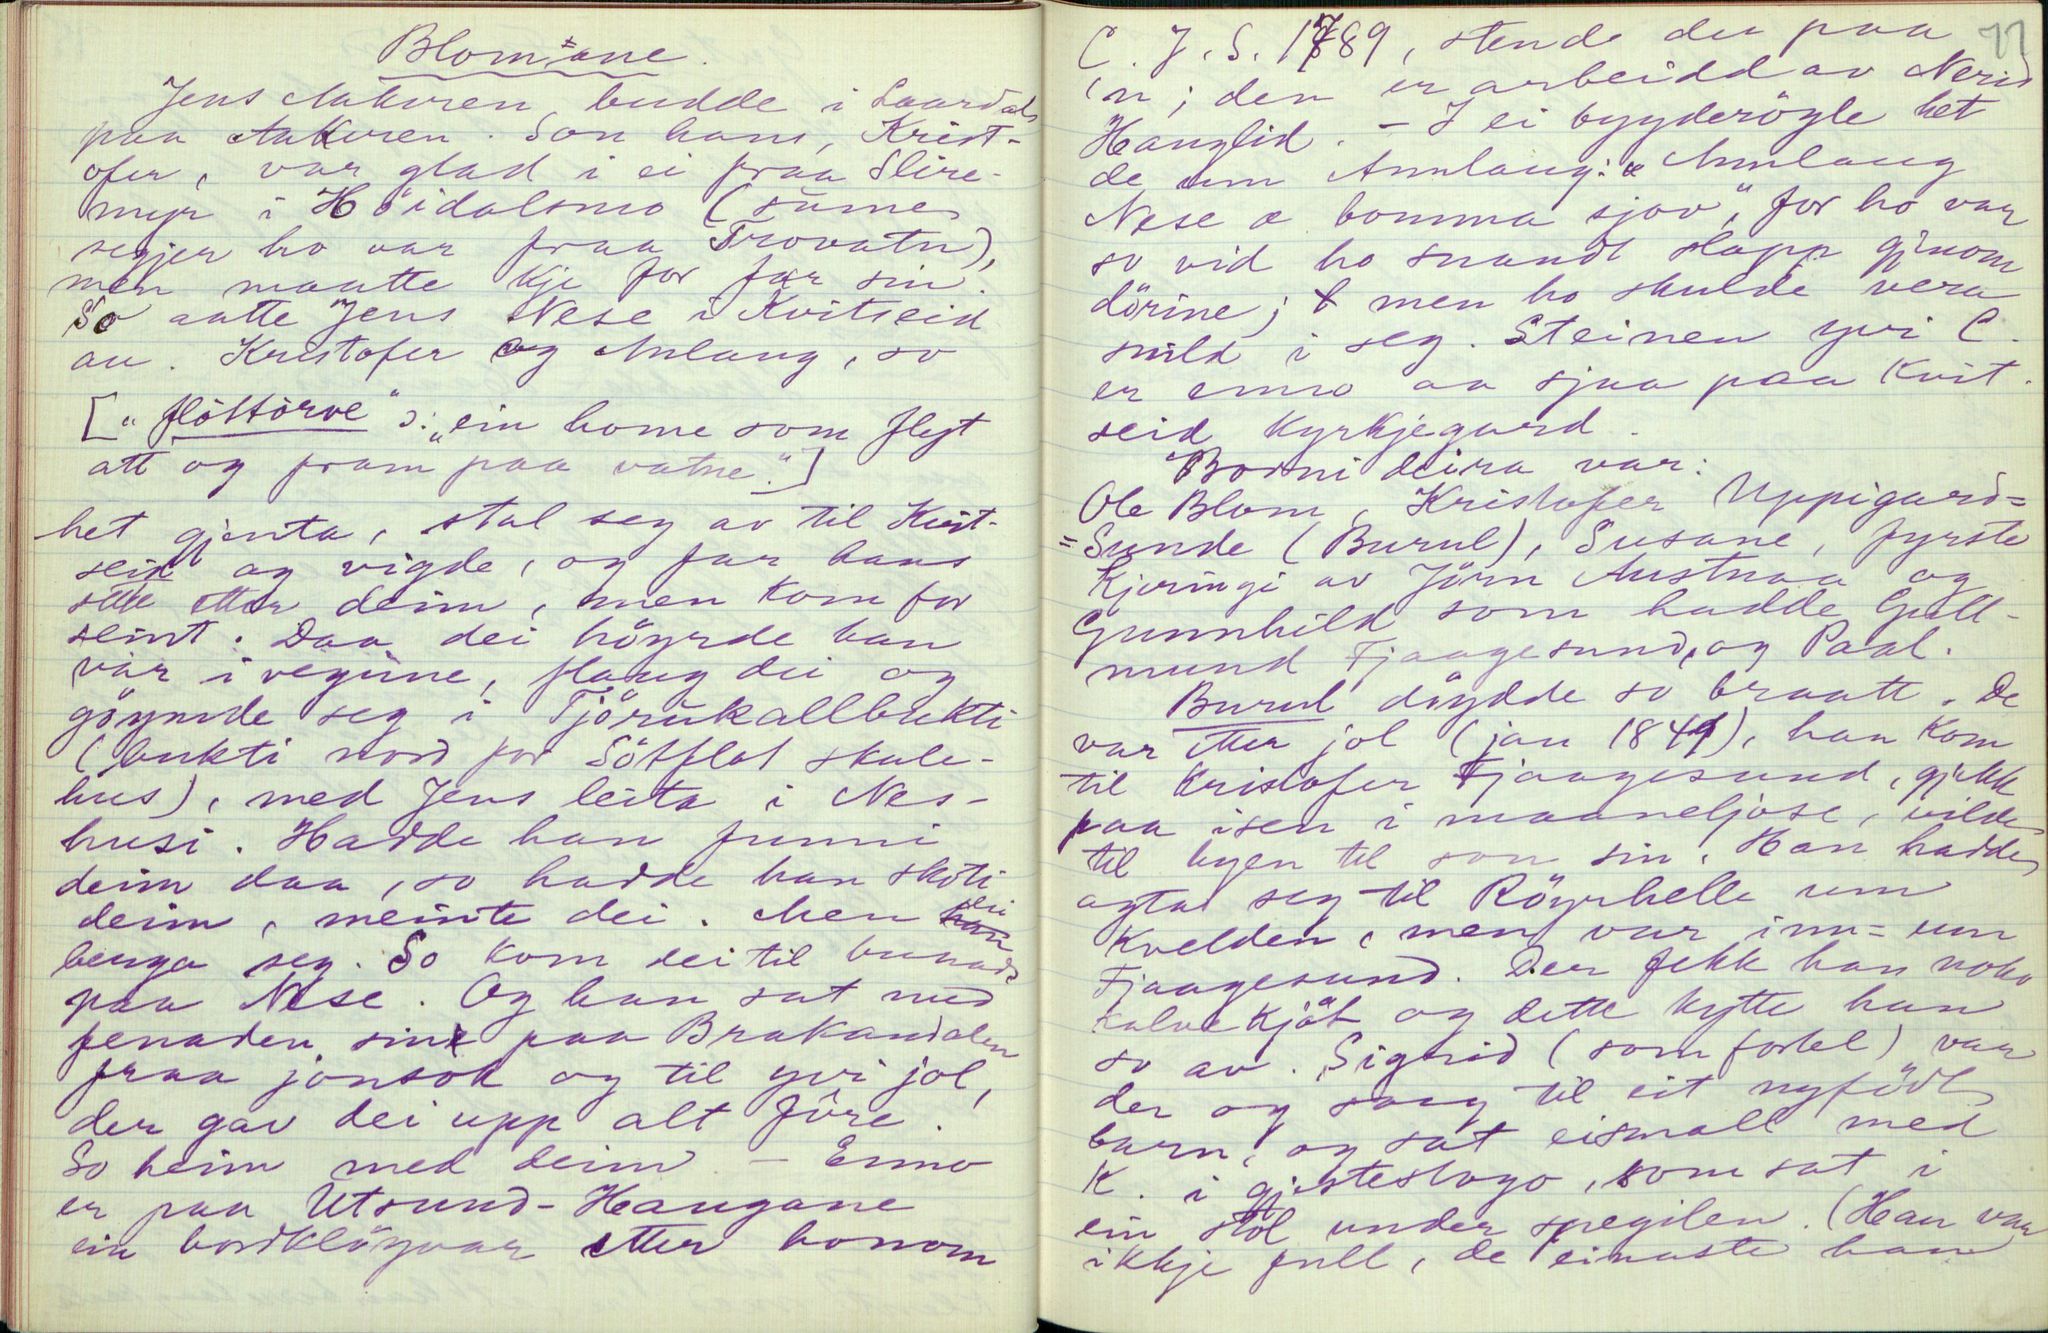 Blom-ane.
Jens Aakren budde i Laardal
paa Aakren. Son hans, Krist-
ofer, var glad i ei fraa Slire-
myr i Höidalsmo (sume
segjer ho var fraa Trovatn),
men maatte kje for far sin.
So aatte Jens Nese i Kvitseid
au. Kristofer og Anlaug, so
["flöttörve" ɔ: "ein home som flyt
att og fram paa vatne."]
het gjenta, stal seg av til Kvit-
seid og vigde, og far hans
sette etter deim, men kom for
seint. Daa dei höyrde han
var i vegjine, flaug dei og
göymde seg i Tjörukallbukti
(bukti nord for Sötflot skule-
hus), med Jens leita i Nes-
husi. Hadde han funni
deim daa, so hadde han skoti
deim, meinte dei. Men dei
berga seg. So kom dei til bunads
paa Nese. Og han sat med
fenaden sin paa Brakandalen
fraa jonsok og til yvi jol,
der gav dei upp alt fôre.
So heim med deim. – Enno
er paa Utsund-Haugane
ein bordklöyvar etter honom
77
C. J. S. 1789, stende der paa
'n; den er arbeidd av Nerid
Hauglid. – I ei bygderögle het
de um Annlaug: "Annlaug
Nese æ bomma sjov", for ho var
so vid ho snaudt slapp gjenom
dörine; men ho skulde vera
snild i seg. Steinen yvi C.
er enno aa sjaa paa Kvit-
seid kyrkjegard.
Borni deira var:
Ole Blom, Kristofer Uppigard=
=Sunde (Burul), Susane, fyrste
kjeringi av Jörn Austnaa og
Gunnhild som hadde Gull-
mund Fjaagesund, og Paal.
Burul döydde so braatt. De
var etter jol (jan 1841), han kom
til Kristofer Fjaagesund, gjekk
paa isen i maaneljose, vilde
til byen til son sin. Han hadde
agta seg til Röyrhelle um
kvelden, men var inn-um
Fjaagesund. Der fekk han noko
kalvekjöt og dette kytte han
so av. Sigrid (som fortel) var
der og saug til eit nyfödt
barn, og sat eismall med
K. i gjestestogo, som sat i
ein stol under spegilen. (Han var
ikkje full, de einaste han